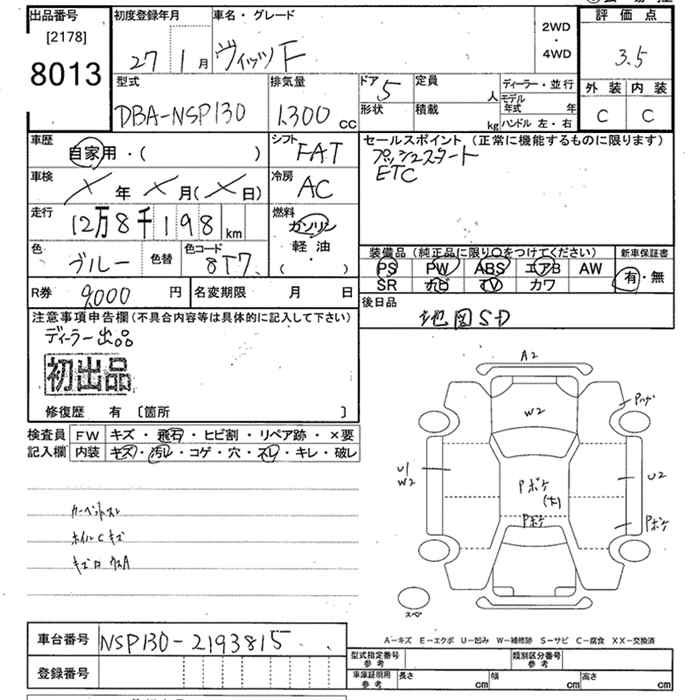 出品番号
[2178]
8013
初度登録年月
27 1 月
車名・グレード
ヴィッツ F
2WD
・
4WD
評価点
3.5
外装 内装
C C
型式
DBA-NSP130
排気量
1.300 cc
ドア 5
形状
定員 人
積載 kg
ディーラー・並行
モデル年式 年
ハンドル 左・右
車歴
自家用・( )
シフト
FAT
セールスポイント (正常に機能するものに限ります)
プッシュスタート
ETC
車検
× 年 × 月(× 日)
冷房
AC
走行
12万8千198 km
燃料
ガソリン
軽油
( )
色
ブルー
色替
色コード
8T7
装備品 (純正品に限り○をつけてください)
PS PW ABS エアB AW
SR ナビ TV カワ
新車保証書
有・無
R券 9,000 円
名変期限 月 日
後日品
地図SD
注意事項申告欄(不具合内容等は具体的に記入して下さい)
ディーラー出品
初出品
修復歴 有 [箇所 ]
検査員記入欄
FW キズ・飛石・ヒビ割・リペア跡・×要
内装 キズ・汚レ・コゲ・穴・スレ・キレ・破レ
ホイルCキズ
A2
W2
U1
W2
Pボケ
(大)
Pボケ
U2
Pボケ
スペア
A-キズ E-エクボ U-凹み W-補修跡 S-サビ C-腐食 XX-交換済
車台番号 NSP130-2193815
登録番号
型式指定番号
参考
類別区分番号
参考
車庫証明用
参考
長さ cm
幅 cm
高さ cm